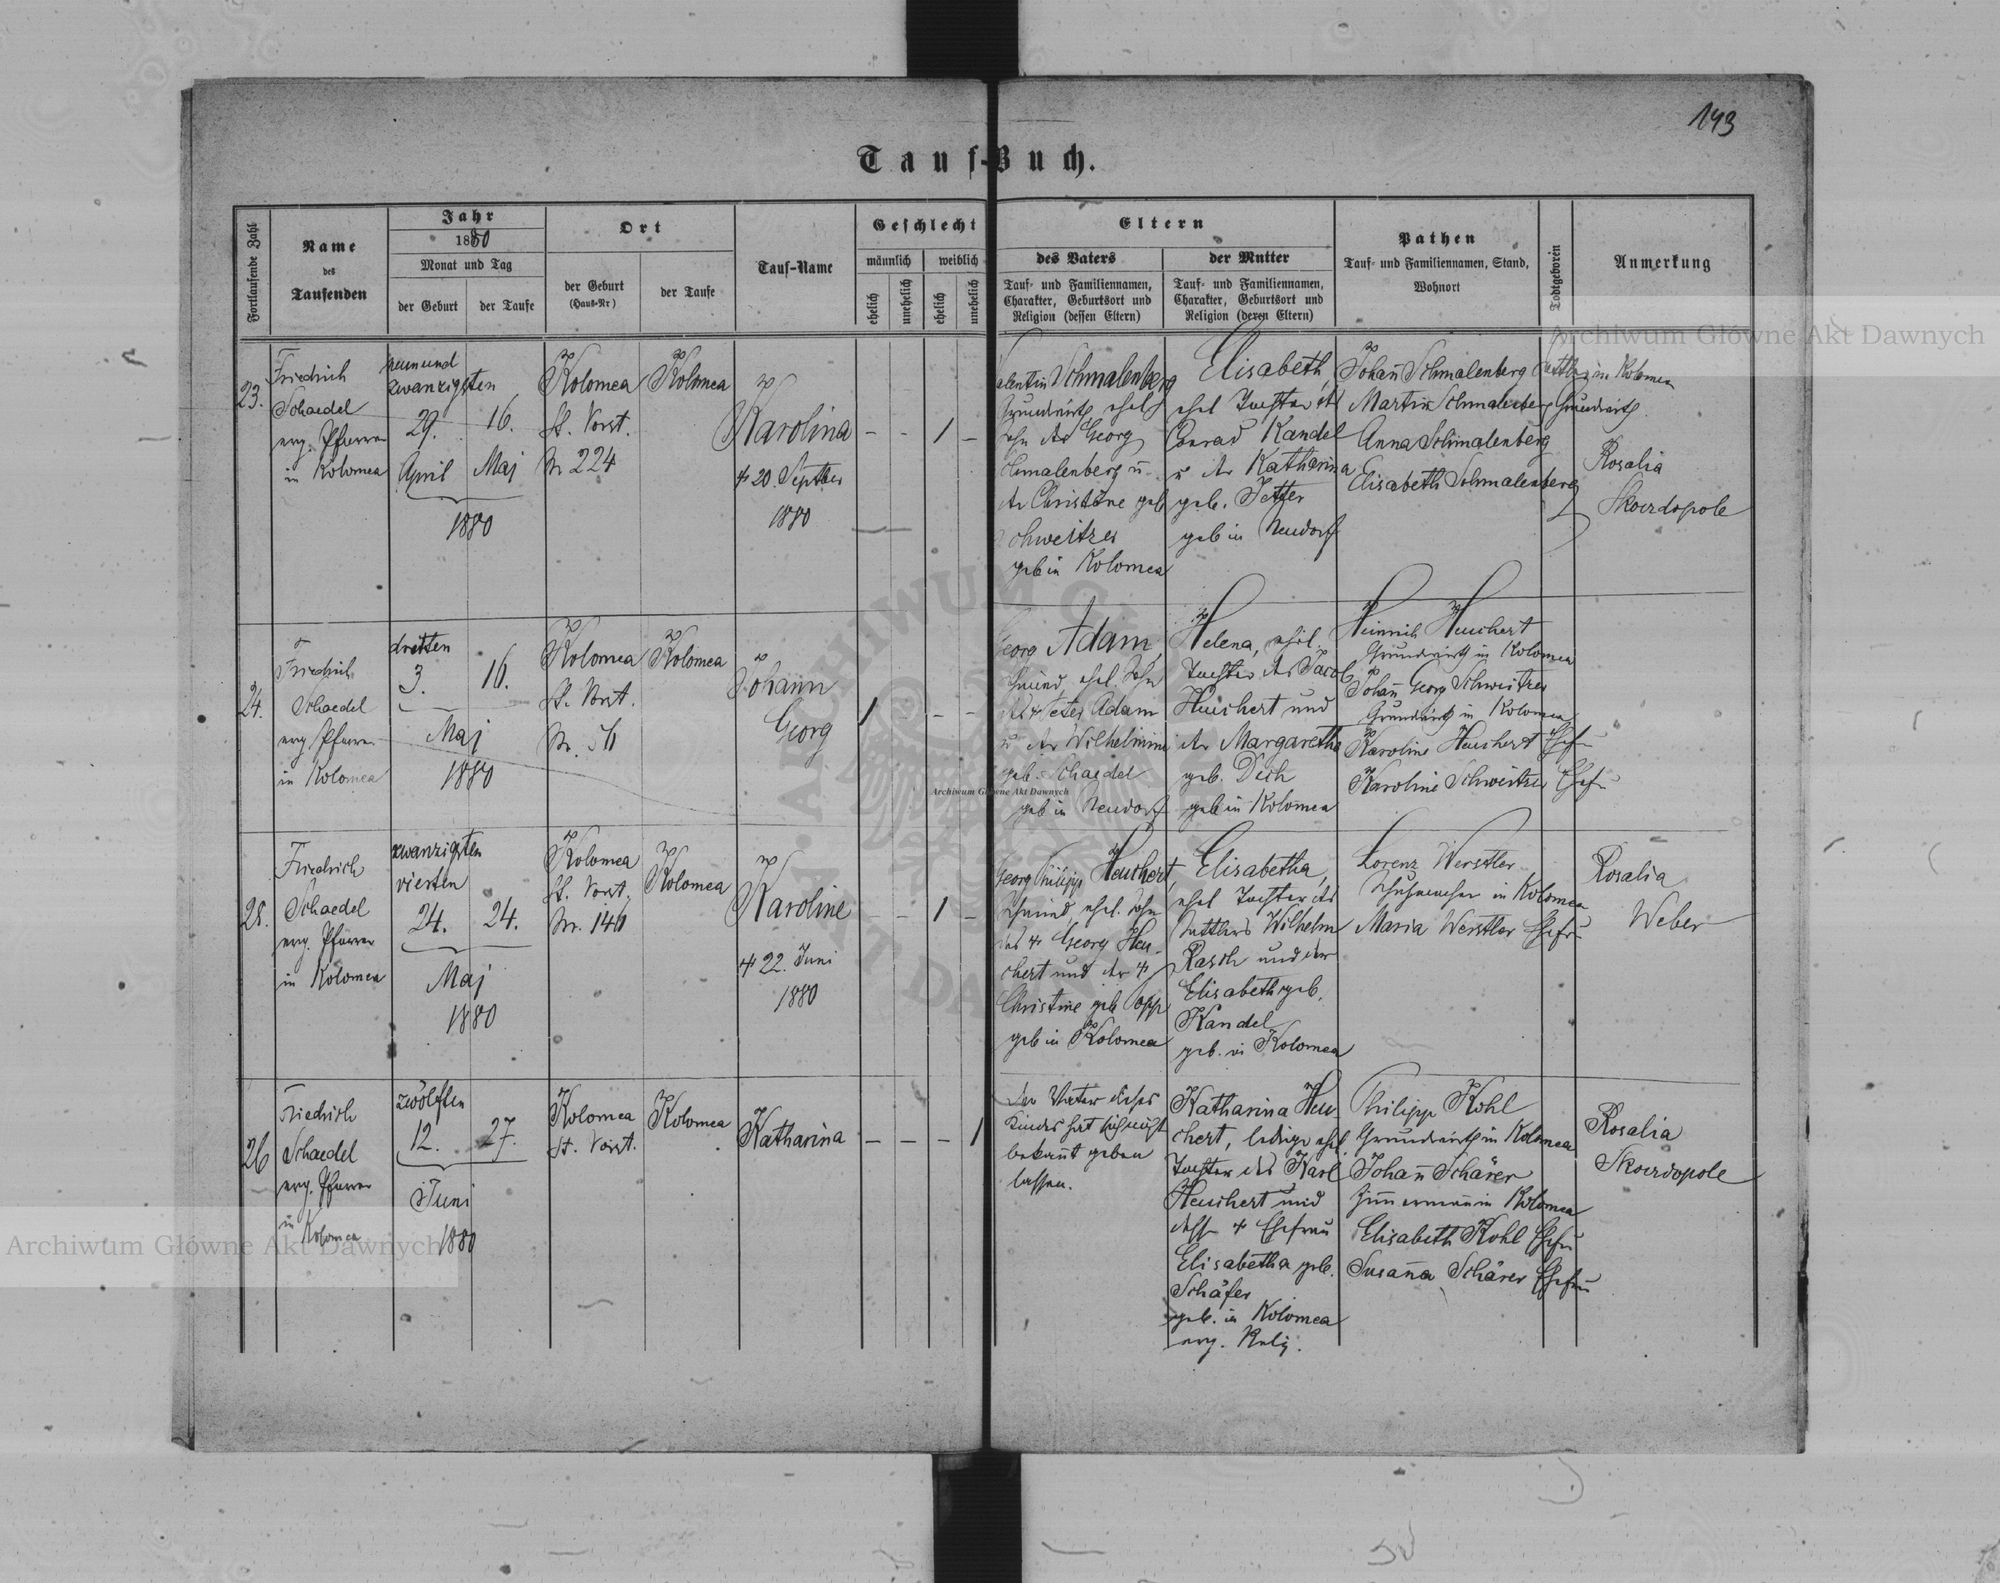 143
Tauf-Buch.
Fortlaufende Zahl
Name
des
Taufenden
Jahr
1880
Monat und Tag
der Geburt
der Taufe
Ort
der Geburt
(Haus-Nr)
der Taufe
Tauf-Name
Geschlecht
männlich
weiblich
ehelich
unehelich
ehelich
unehelich
Eltern
des Vaters
Tauf- und Familiennamen,
Charakter, Geburtsort und
Religion (dessen Eltern)
der Mutter
Tauf- und Familiennamen,
Charakter, Geburtsort und
Religion (deren Eltern)
Pathen
Tauf- und Familiennamen, Stand,
Wohnort
Todtgeboren
Anmerkung
23.
Friedrich
Schaedel
evg. Pfarrer
in Kolomea
neunund
zwanzigsten
29.
April
16.
Maj
1880
Kolomea
St. Vorst.
Nr. 224
Kolomea
Karolina
† 20. Septber
1880
- - 1 -
Valentin Schmalenberg
Grundwirth, ehel.
Sohn des Georg
Schmalenberg u.
der Christine geb
Schweitzer
geb in Kolomea
Elisabeth,
ehel Tochter des
Conrad Kandel
u der Katharina
geb. Jetter
geb in Neudorf
Johañ Schmalenberg Sattler in Kolomea
Martin Schmalenberg Grundwirth
Anna Schmalenberg
Elisabeth Schmalenberg
Rosalia
Skoerdopole
24.
Friedrich
Schaedel
evg. Pfarrer
in Kolomea
dritten
3.
16.
Maj
1880
Kolomea
St. Vorst.
Kolomea
Johann
Georg
1 - -
Georg Adam,
Schmied, ehel. Sohn
des † Peter Adam
u der Wilhelmine
geb. Schaedel
geb in Neudorf
Helena, ehel.
Tochter des Jacob
Heuchert und
der Margaretha
geb. Dech
geb in Kolomea
Heinrich Heuchert
Grundwirth in Kolomea
Johañ Georg Schweitzer
Grundwirth in Kolomea
Karoline Heuchert Ehefr
Karoline Schweitzer Ehefr
25.
Friedrich
Schaedel
evg. Pfarrer
in Kolomea
zwanzigsten
vierten
24.
24.
Maj
1880
Kolomea
St. Vorst.
Nr. 146
Kolomea
Karoline
† 22. Juni
1880
- - 1 -
Georg Philipp Heuchert,
Schmied, ehel. Sohn
des † Georg Heu-
chert und der †
Christine geb Opp
geb in Kolomea
Elisabetha,
ehel Tochter des
Sattlers Wilhelm
Rasch und der
Elisabeth geb.
Kandel
geb. in Kolomea
Lorenz Werstler
Schuhmacher in Kolomea
Maria Werstler Ehefr
Rosalia
Weber
26
Friedrich
Schaedel
evg. Pfarrer
in
Kolomea
zwölften
12.
27.
Juni
1880
Kolomea
St. Vorst.
Kolomea
Katharina
- - - 1
Der Vater dieses
Kindes hat sich nicht
bekañt geben
lassen.
Katharina Heu-
chert, ledige ehel.
Tochter des Karl
Heuchert und
dess † Ehefrau
Elisabetha geb.
Schäfer
geb. in Kolomea
evg. Relig.
Philipp Kohl
Grundwirth in Kolomea
Johañ Schärer
Zim̄ermañ in Kolomea
Elisabeth Kohl Ehefr
Susaña Schärer Ehefr
Rosalia
Skoerdopole
Archiwum Główne Akt Dawnych
Archiwum Główne Akt Dawnych
Archiwum Główne Akt Dawnych